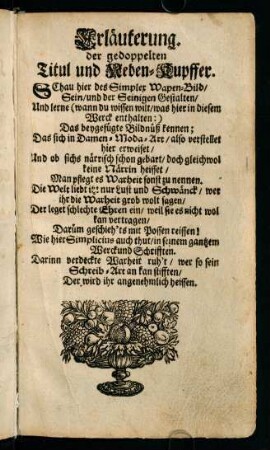 Erläuterung.
der gedoppelten
Titul und Neben-Kupffer.
SChau hier des Simplex Wapen-Bild/
Sein/und der Seinigen Gestalten/
Und lerne (wann du wissen wilt/was hier in diesem
Werck enthalten:)
Das beygefügte Bildnüß kennen;
Das sich in Damen-Moda-Art/also verstellet
hier erweiset/
Und ob sichs närrisch schon gebart/doch gleichwol
keine Närrin heisset/
Man pflegt es Warheit sonst zu nennen.
Die Welt liebt itzt nur Lust und Schwänck/wer
ihr die Warheit grob wolt sagen/
Der leget schlechte Ehren ein/weil sie es nicht wol
kan vertragen/
Darüm geschieh'ts mit Possen reissen!
Wie hier Simplicius auch thut/in seinem gantzem
Werck und Schrifften.
Darinn verdeckte Warheit ruh't/wer so sein
Schreib-Art an kan stifften/
Der wird ihr angenehmlich heissen.